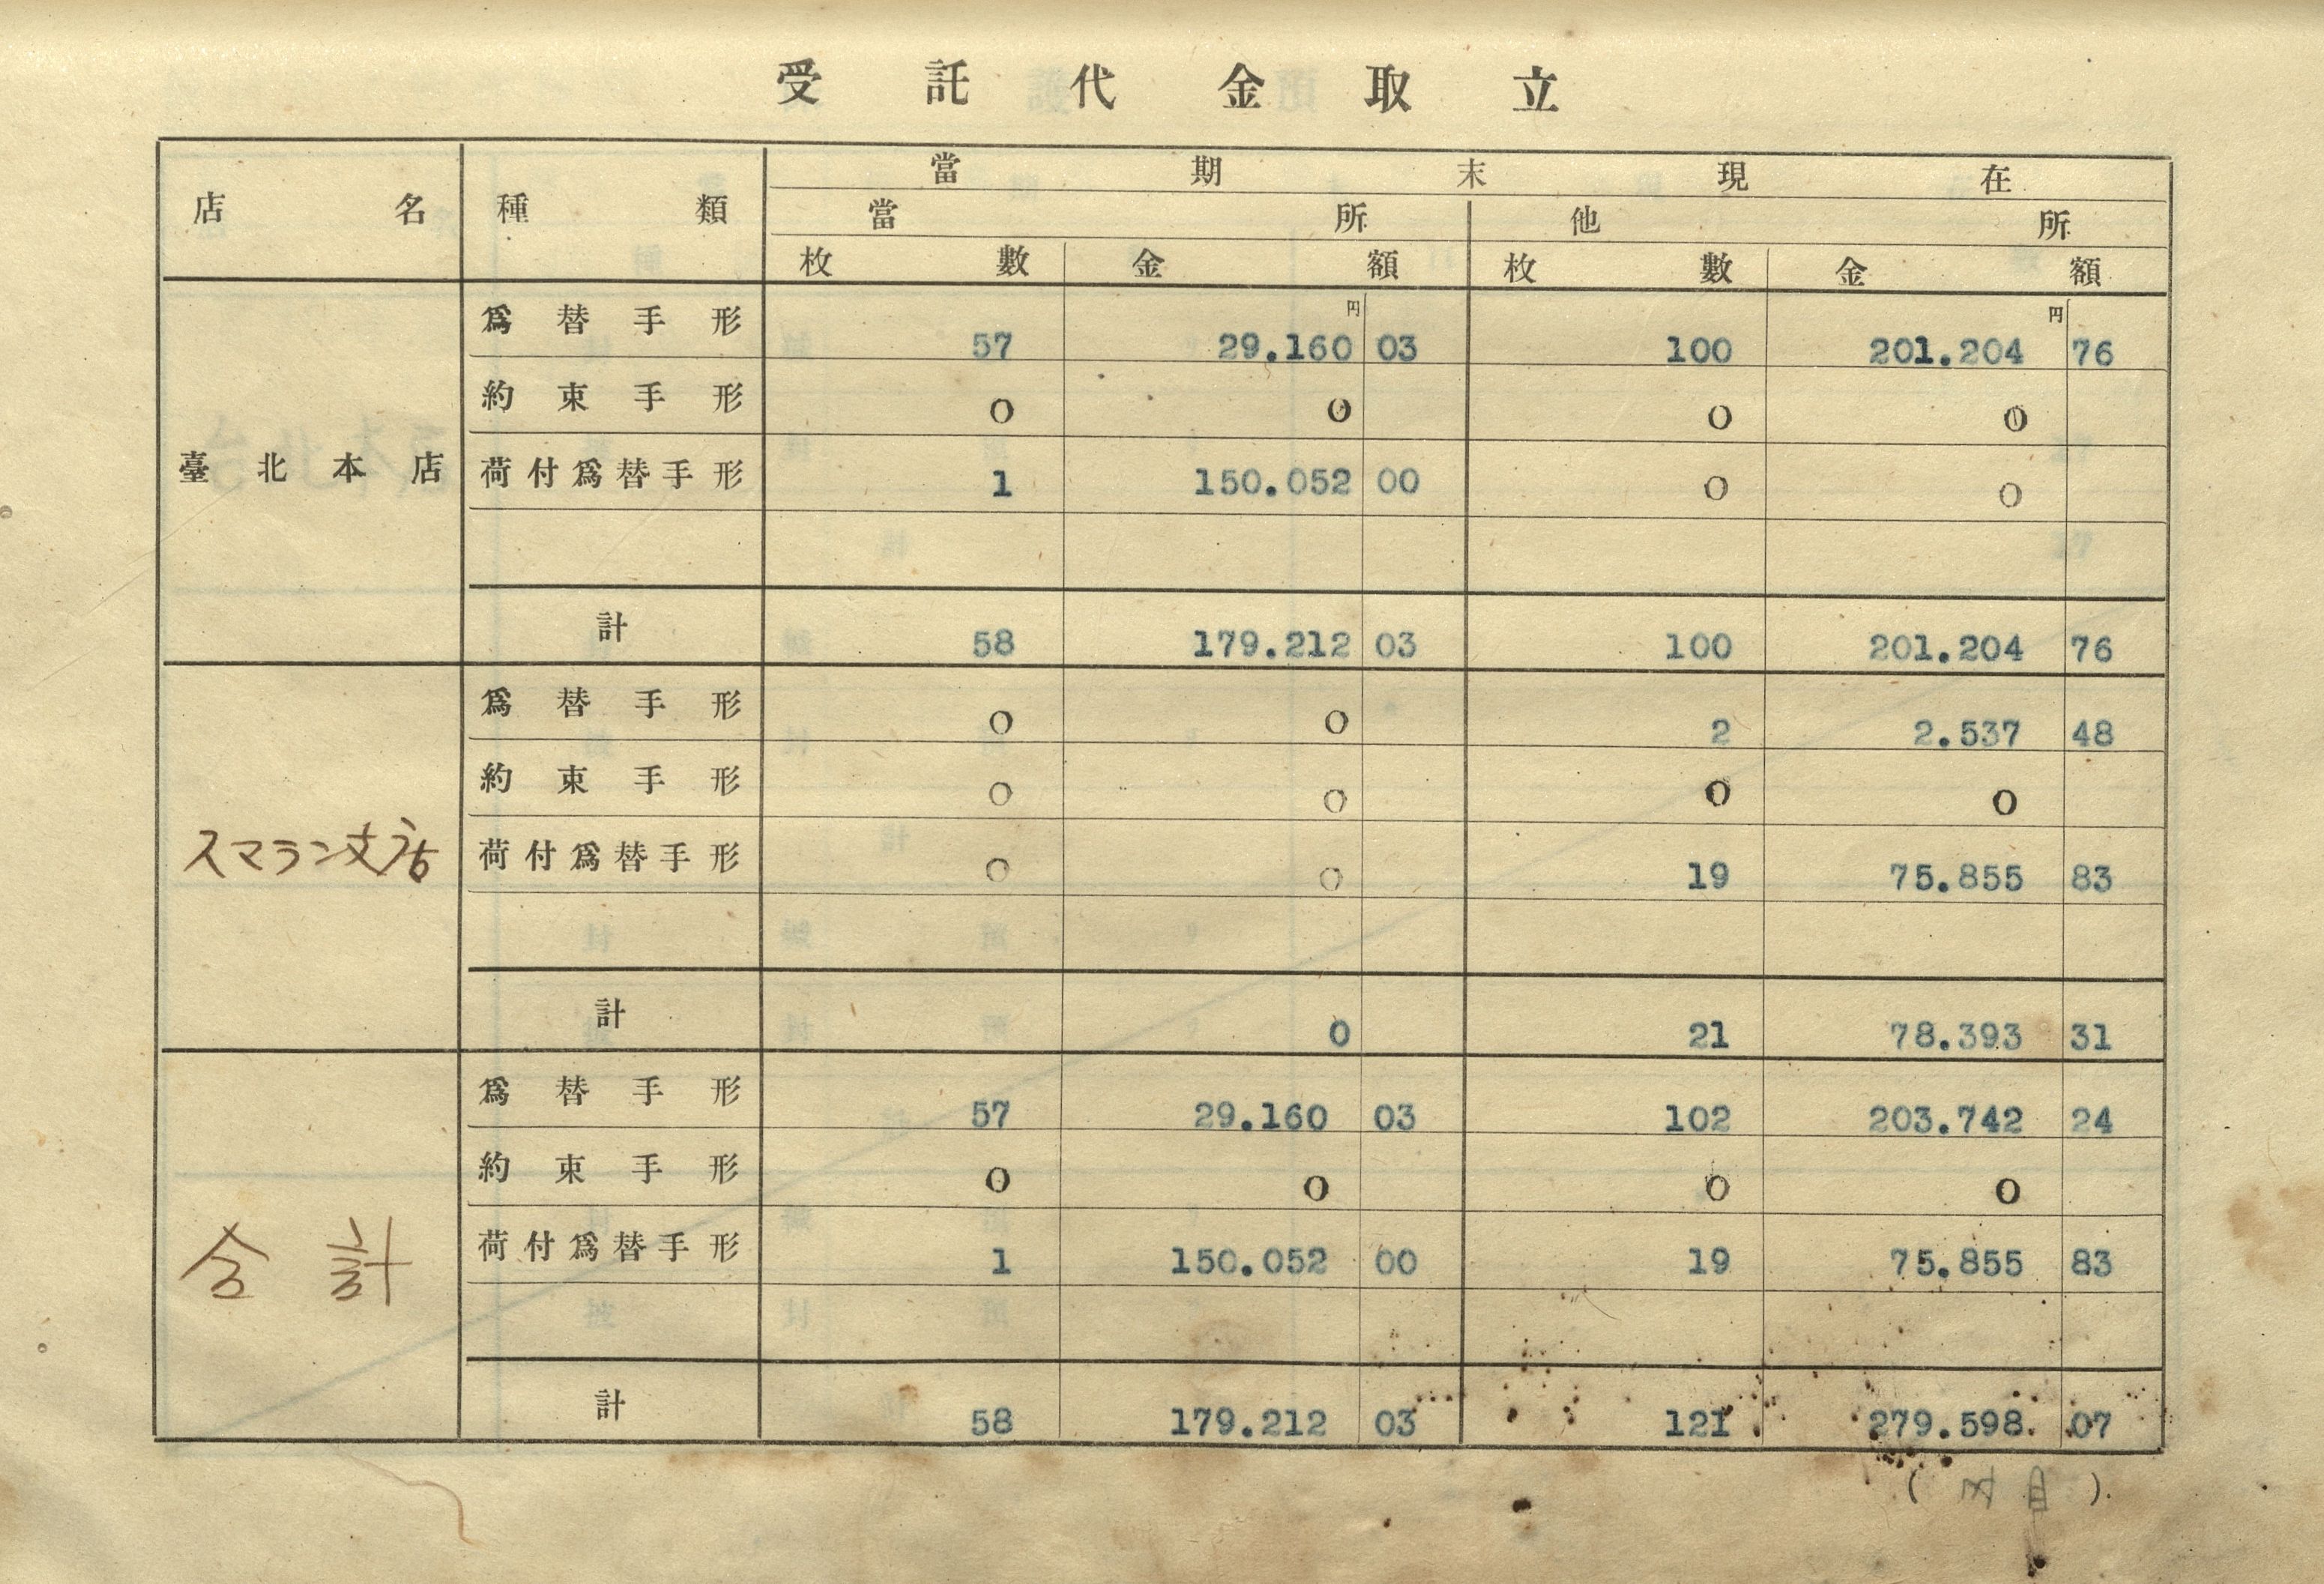 受託代金取立
店名 種類 當期末現在
當所 他所
枚數 金額 枚數 金額
円 円
爲替手形 57 29.160 03 100 201.204 76
約束手形 0 0 0 0
臺北本店 荷付爲替手形 1 150.052 00 0 0
計 58 179.212 03 100 201.204 76
爲替手形 0 0 2 2.537 48
約束手形 0 0 0 0
スマラン支店 荷付爲替手形 0 0 19 75.855 83
計 0 21 78.393 31
爲替手形 57 29.160 03 102 203.742 24
約束手形 0 0 0 0
合計 荷付爲替手形 1 150.052 00 19 75.855 83
計 58 179.212 03 121 279.598 07